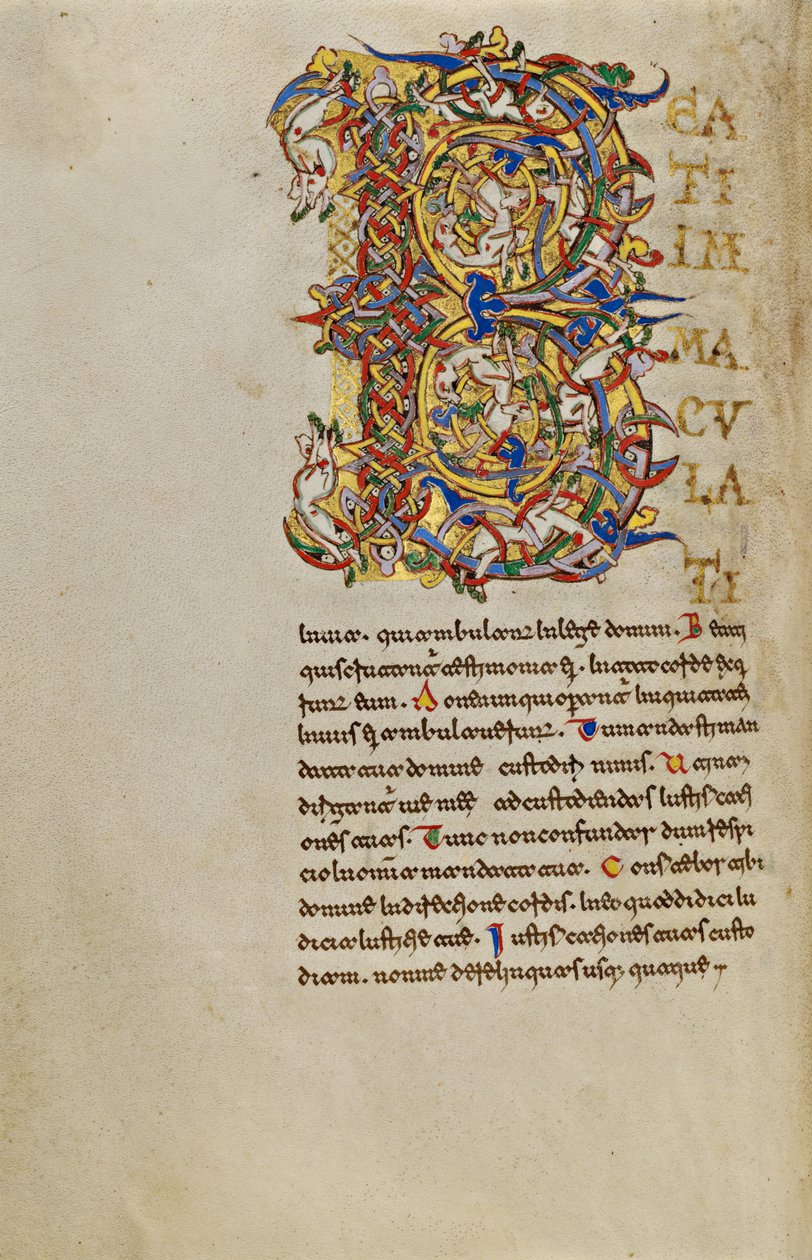 B
EA
TI
IM
MA
CV
LA
TI
inuia. quiambulant inlege domini. Beati
quiscrutant̄ testimonia eı̄. intotocorde exq
runt eum. Non enim qui operant̄ iniquitatem
inuiis eı̄ ambulauerunt. Tu mandasti man
data tua domine custodiri nimis. Utinam
dirigant̄ uie mee ad custodiendas iustificati
ones tuas. Tunc non confundar dum respi
cio inom̄ia mandata tua. Confitebor tibi
domine indirectione cordis. ineo quod didici iu
dicia iustitie tue. Iustificationes tuas custo
diam. non me derelinquas usq; quaque